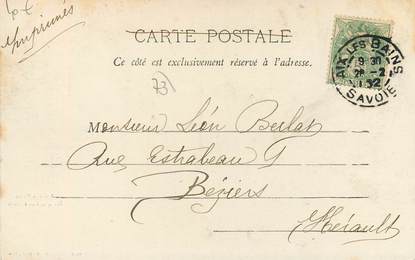 Imprimés
CARTE POSTALE
Ce côté est exclusivement réservé à l'adresse.
AIX-LES-BAINS
9 30
SAVOIE
73
Monsieur Léon Berlat
Rue Estrabeau 9
Béziers
Hérault